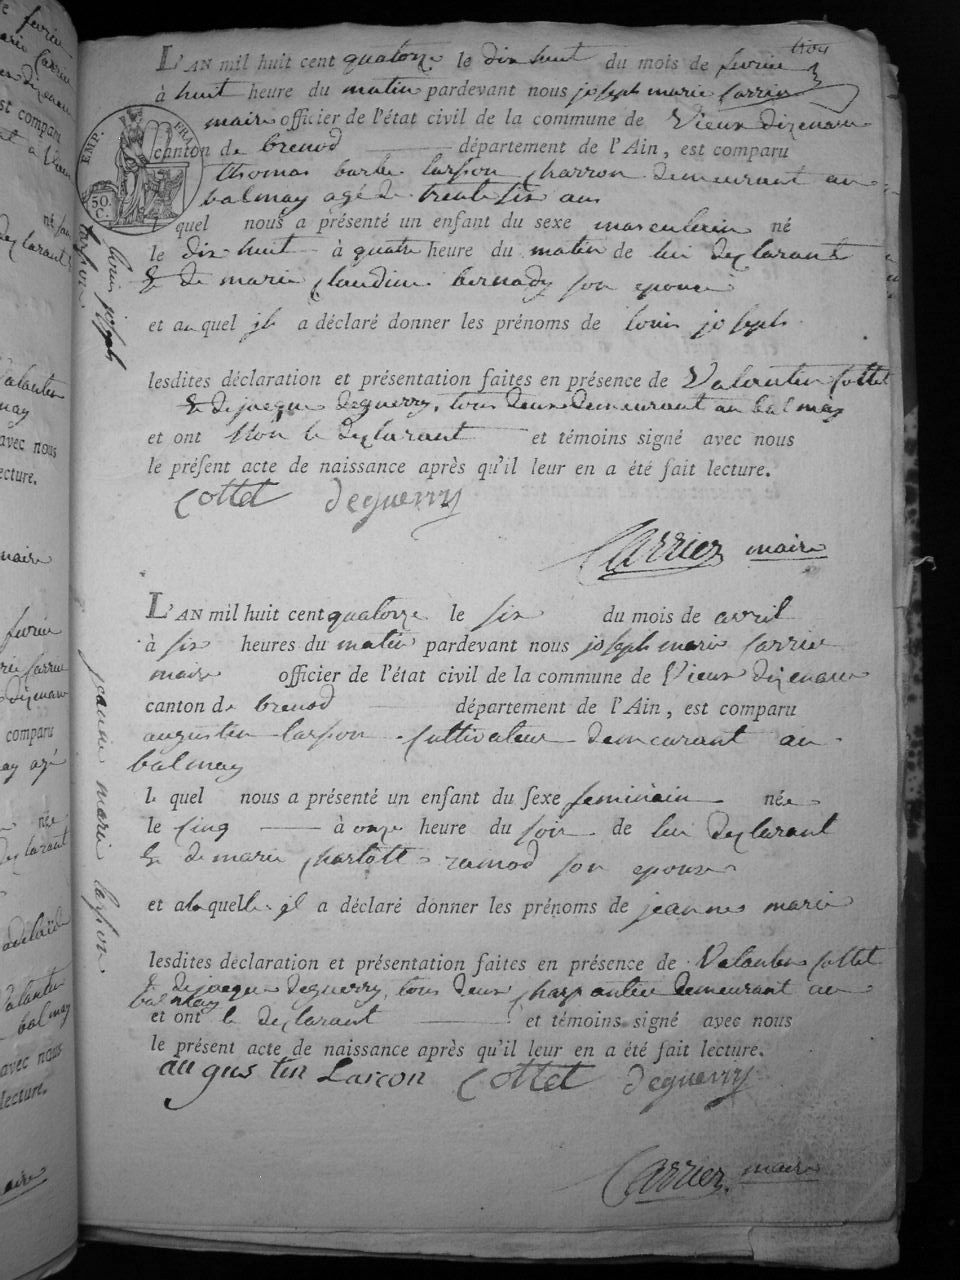 trois
L'AN mil huit cent quatorze le dix huit du mois de fevrier
à huit heure du matin pardevant nous joseph marie Carrier
maire officier de l'état civil de la commune de Vieux dizenave
canton de brenod département de l'Ain, est comparu
thomas barbe larson charron demeurant au
balmay agé de trente six ans
quel nous a présenté un enfant du sexe masculin né
le dix huit à quatre heure du matin de lui declarant
& de marie claudine bernady son epouse
et auquel il a déclaré donner les prénoms de louis joseph
lesdites déclaration et présentation faites en présence de Valentin Cottet
& de jacque deguerry, tous deux demeurant au balmay
et ont non le declarant et témoins signé avec nous
le présent acte de naissance après qu'il leur en a été fait lecture.
Cottet deguerry
Carrier maire
EMP. FRA
50. C.
louis joseph
larson
L'AN mil huit cent quatorze le six du mois de avril
à six heures du matin pardevant nous joseph marie Carrier
maire officier de l'état civil de la commune de Vieux dizenave
canton de brenod département de l'Ain, est comparu
augustin larson cultivateur demeurant au
balmay
le quel nous a présenté un enfant du sexe feminin née
le cinq à onze heure du soir de lui declarant
& de marie charlotte ramod son epouse
et a laquelle il a déclaré donner les prénoms de jeanne marie
lesdites déclaration et présentation faites en présence de Valentin Cottet
& de jacque deguerry, tous deux charpentier demeurant au
balmay
et ont le declarant et témoins signé avec nous
le présent acte de naissance après qu'il leur en a été fait lecture.
augustin Larcon Cottet deguerry
Carrier maire
jeanne marie larson